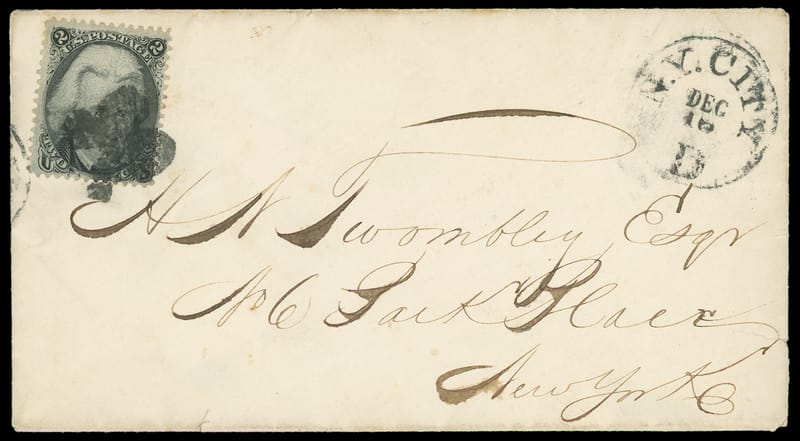 2 U.S. POSTAGE 2
TWO
N.Y. CITY
DEC
16
D
H N Twombley Esqr
No 6 Park Place
New York